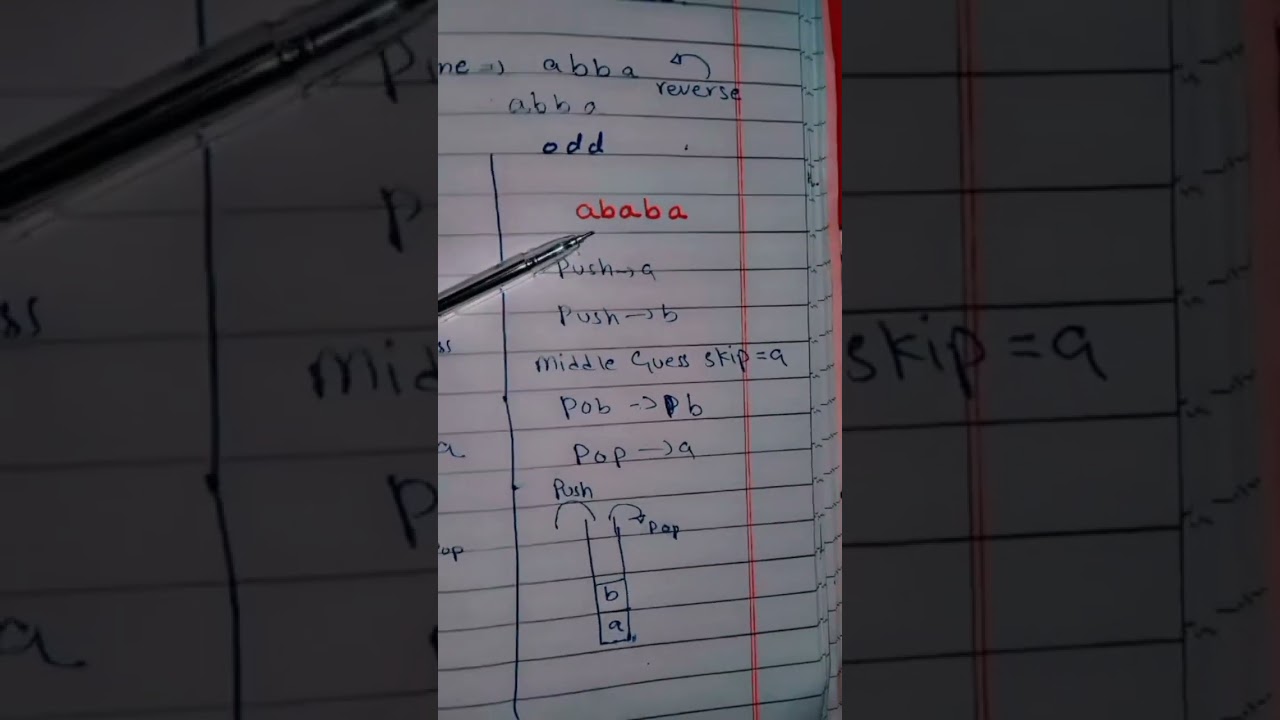 me → abba
reverse
abba
odd
ababa
Push → a
Push → b
ss
middle Guess skip = a
pob → b
a
pop → a
Push
pop
op
b
a